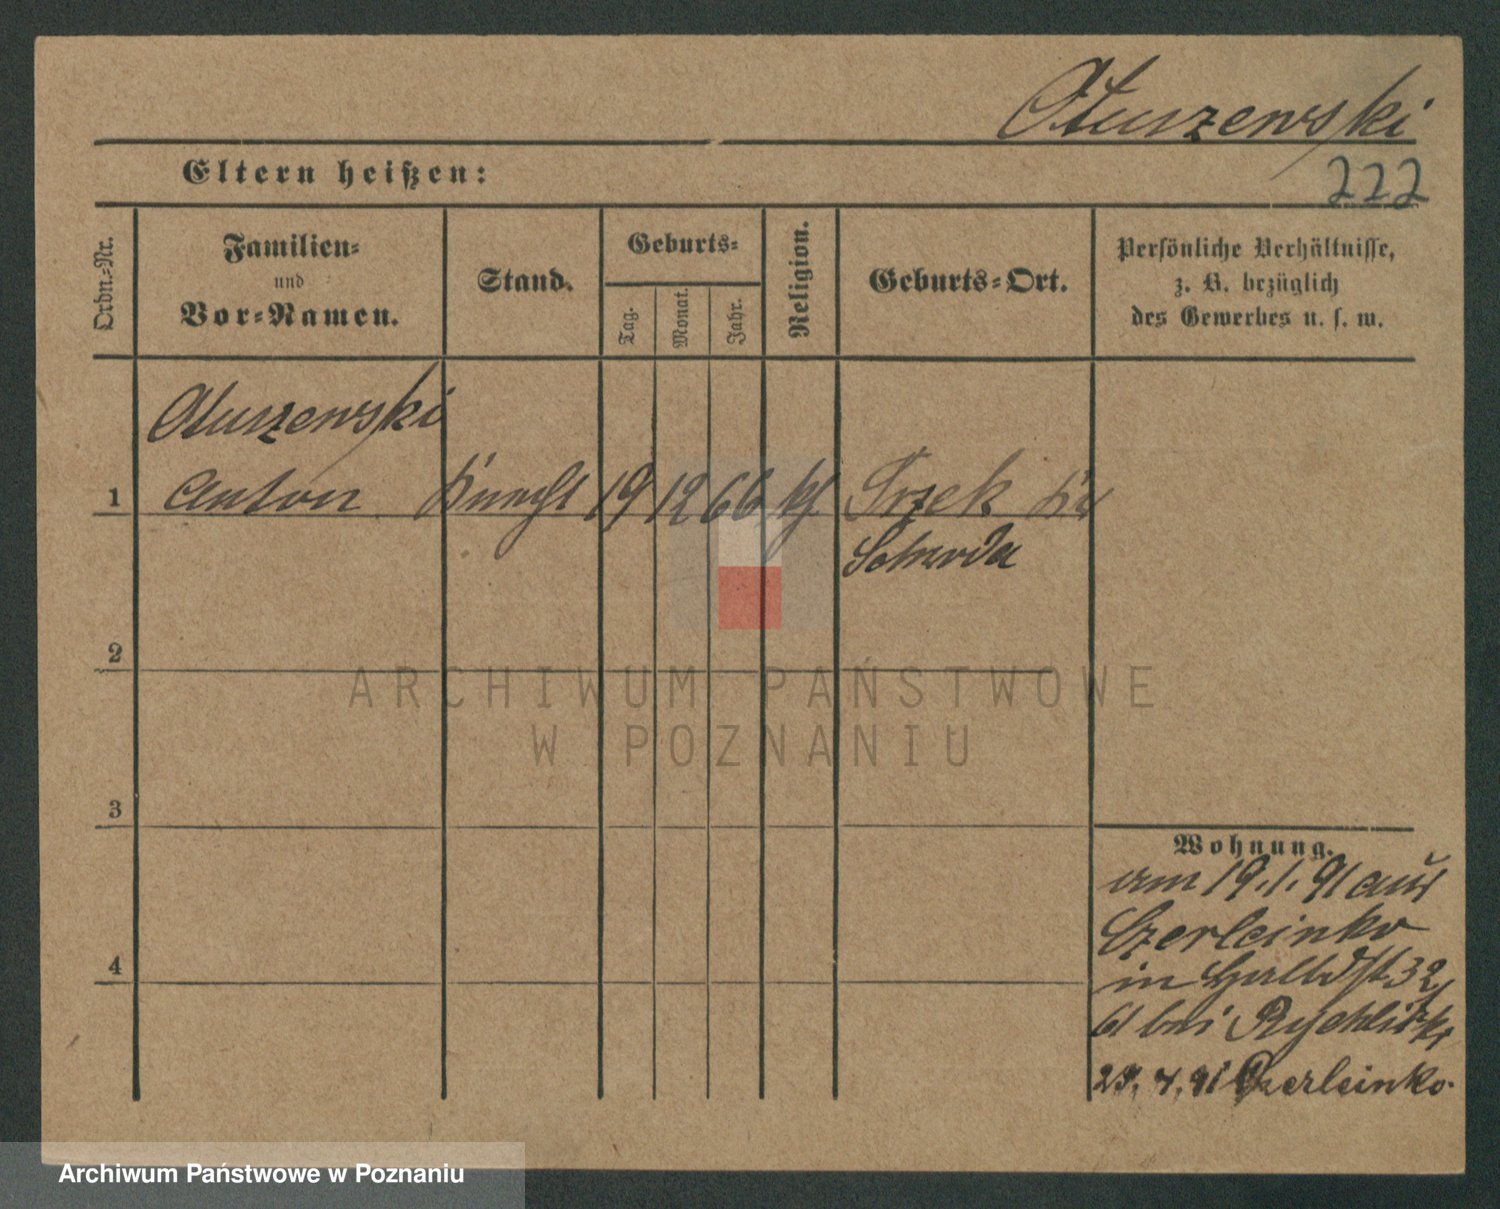 Otuszewski
Eltern heißen:
222
Ordn.-Nr.
Familien-
und
Vor-Namen.
Stand.
Geburts-
Tag.
Monat.
Jahr.
Religion.
Geburts-Ort.
Persönliche Verhältnisse,
z. B. bezüglich
des Gewerbes u. s. w.
Otuszewski
1 Anton Knecht 19 12 66 kt Trzek Kr
Schroda
2
3
4
Wohnung.
am 19.1.91 aus
Czerleinko
in Halbdfst 32
61 bei Rychlitzki
29.4.91 Czerleinko.
ARCHIWUM PAŃSTWOWE
W POZNANIU
Archiwum Państwowe w Poznaniu